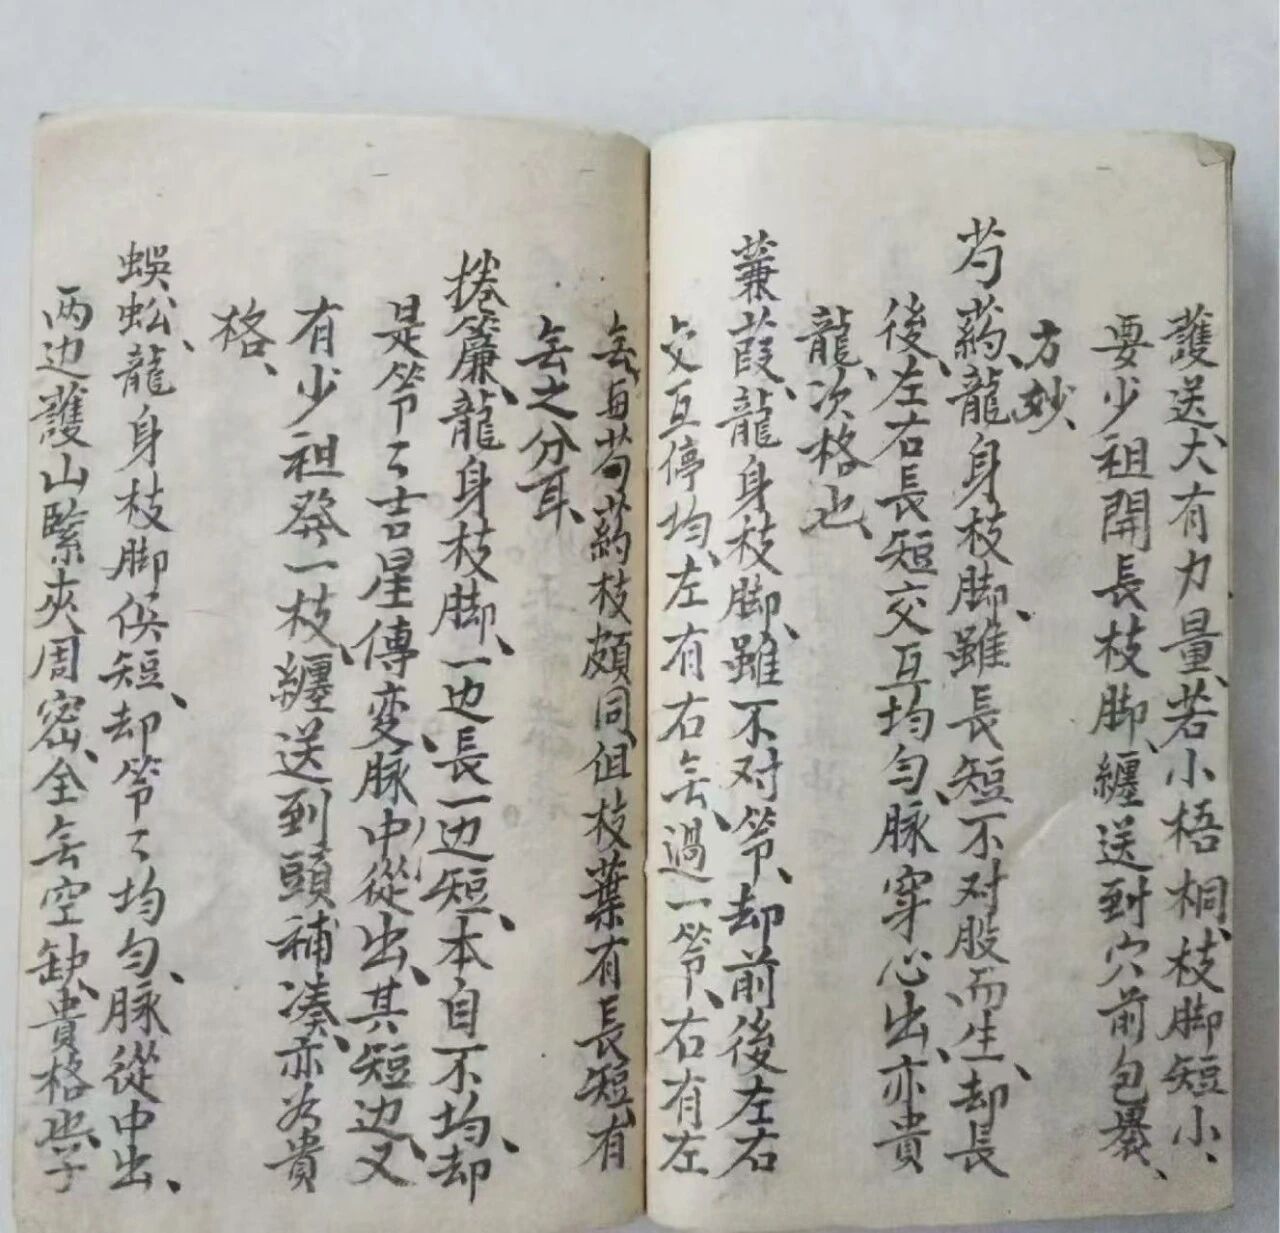 護送大有力量、若小梧桐、枝脚短小、
要少祖開長枝脚、纏送到穴前包褁、
方妙、
芍葯、龍身枝脚、雖長短不对股而生、却長
後、左右長短交互均匀、脉穿心出、亦貴
龍、次格也、
蒹葭、龍身枝脚、雖不对䇲、却前後左右
交互停均、左有右无、過一䇲、右有左
无、與芍葯枝頗同、但枝葉有長短、有
无之分耳、
捲簾、龍身枝脚、一边長一边短、本自不均、却
是䇲々吉星傳变、脉中從出、其短边、又
有少祖発一枝、纏送到頭補凑、亦为貴
格、
蜈蚣、龍身枝脚俱短、却䇲々均匀、脉從中出、
两边護山緊夾周密、全无空缺、貴格也、于